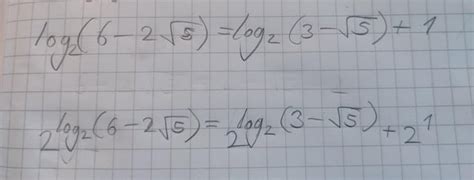 log₂(6-2√5)=log₂(3-√5)+1
2^log₂(6-2√5)=2^log₂(3-√5)+2^1